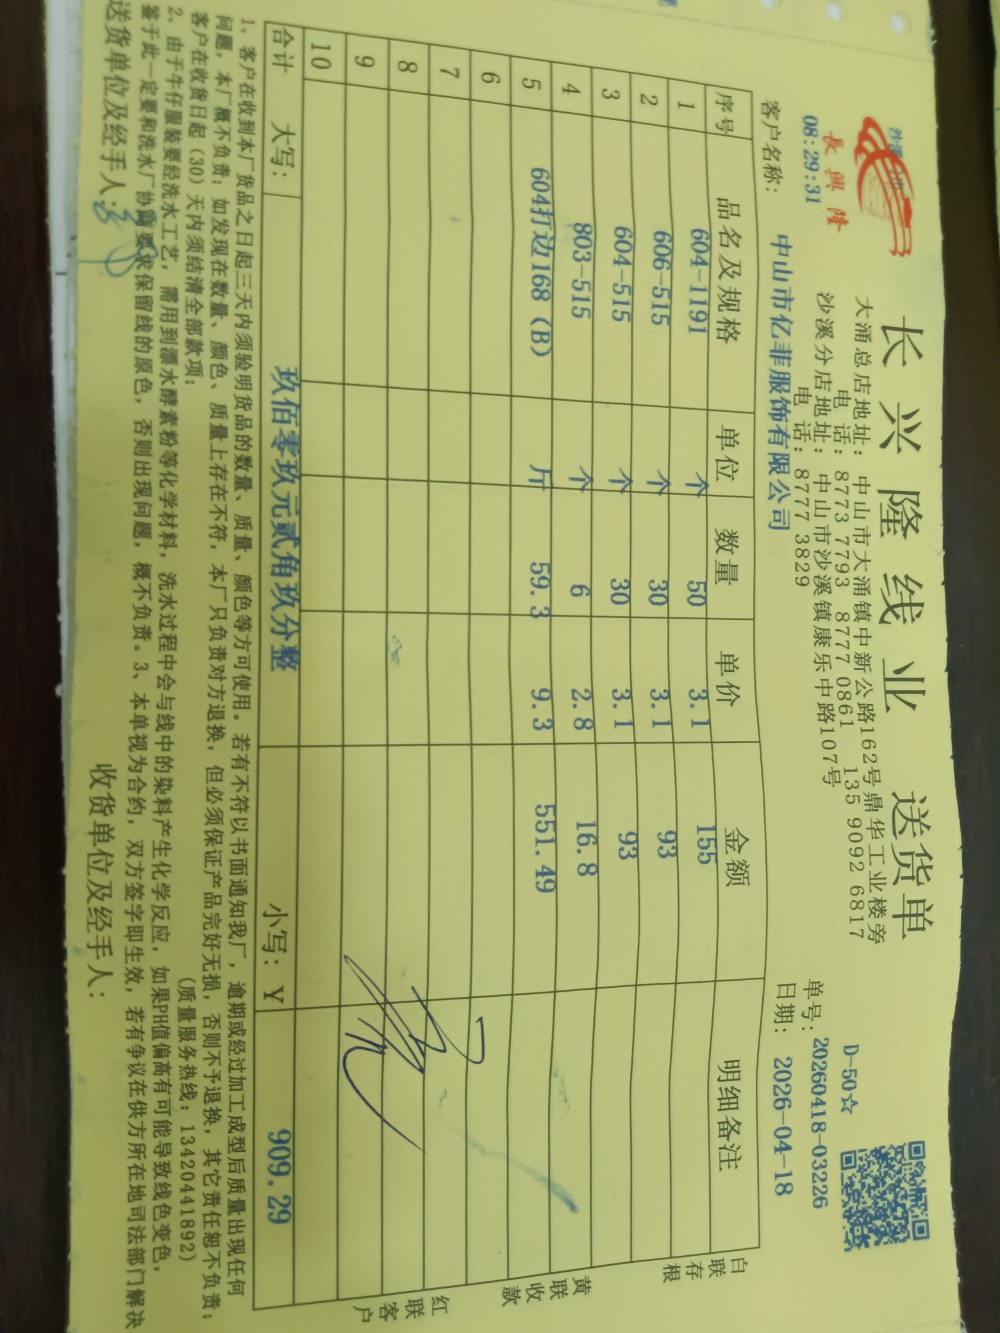 長興隆
长兴隆线业 送货单
大涌总店地址：中山市大涌镇中新公路162号鼎华工业楼旁
电 话：8773 7793 8777 0861 135 9092 6817
沙溪分店地址：中山市沙溪镇康乐中路107号
电 话：8777 3829
D-50☆
08:29:31
单号：20260418-03226
客户名称：中山市亿菲服饰有限公司
日期：2026-04-18
序号 品名及规格 单位 数量 单价 金额 明细备注
1 604-1191 个 50 3.1 155
2 606-515 个 30 3.1 93
3 604-515 个 30 3.1 93
4 803-515 个 6 2.8 16.8
5 604打边168（B） 斤 59.3 9.3 551.49
6
7
8
9
10
合计 大写：玖佰零玖元贰角玖分整 小写：￥ 909.29
白联存根
黄联收款
红联客户
1、客户在收到本厂货品之日起三天内须验明货品的数量、质量、颜色等方可使用。若有不符以书面通知我厂，逾期或经过加工成型后质量出现任何
问题，本厂概不负责；如发现在数量、颜色、质量上存在不符，本厂只负责对方退换，但必须保证产品完好无损，否则不予退换，其它责任恕不负责；
客户在收货日起（30）天内须结清全部款项；
（质量服务热线：13420441892）
2、由于牛仔服装要经洗水工艺，需用到漂水酵素粉等化学材料，洗水过程中会与线中的染料产生化学反应，如果PH值偏高有可能导致线色变色，
鉴于此一定要和洗水厂协商要求保留线的原色，否则出现问题，概不负责。3、本单视为合约，双方签字即生效，若有争议在供方所在地司法部门解决
送货单位及经手人：
收货单位及经手人：